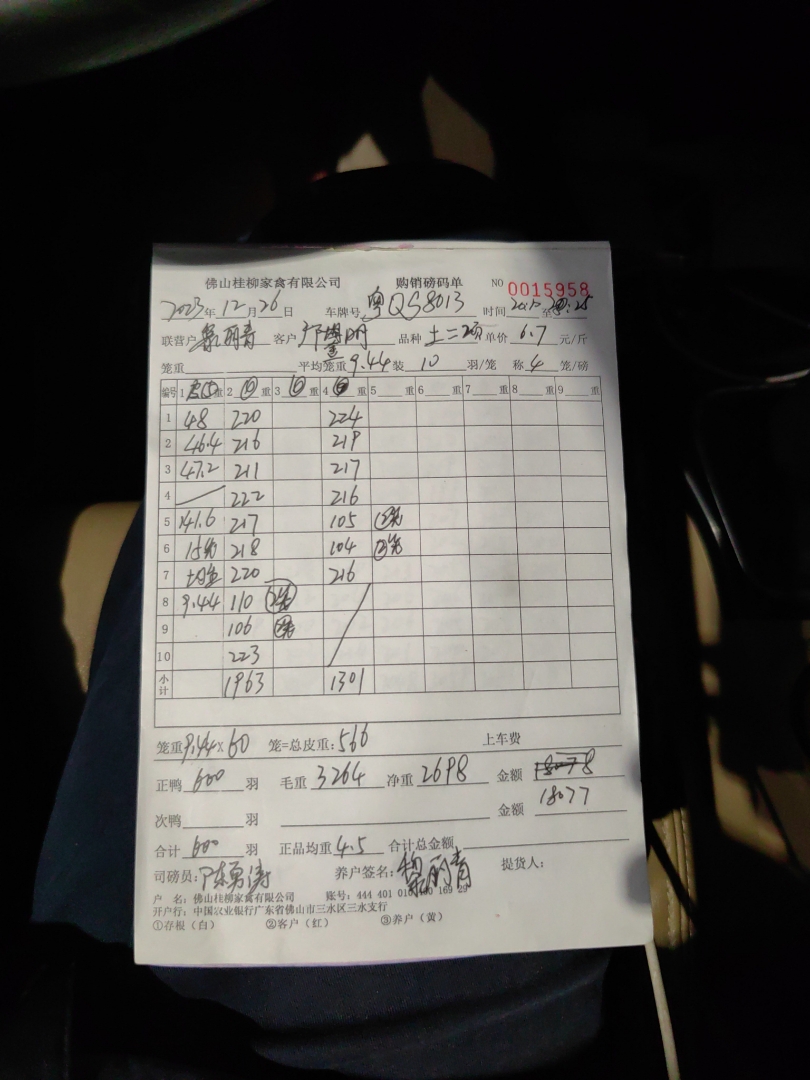 佛山桂柳家禽有限公司 购销磅码单 NO 0015958
2023年12月26日 车牌号 粤QS8013 时间 至
联营户 黎丽青 客户 邝 明 品种 土二 单价 6.7 元/斤
笼重 平均笼重 9.44 装 10 羽/笼 称 4 笼/磅
编号 1 重 2 重 3 重 4 重 5 重 6 重 7 重 8 重 9 重
1 48 220 224
2 46.4 216 219
3 47.2 211 217
4 222 216
5 141.6 217 105
6 15笼 218 104
7 均重 220 216
8 9.44 110
9 106
10 223
小计 1963 1301
笼重 9.44×60 笼=总皮重: 566 上车费
正鸭 600 羽 毛重 3264 净重 2698 金额 18078
次鸭 羽 金额 18077
合计 600 羽 正品均重 4.5 合计总金额
司磅员: 陈勇涛 养户签名: 黎丽青 提货人:
户 名: 佛山桂柳家禽有限公司 账号: 444 401 010 169 29
开户行: 中国农业银行广东省佛山市三水区三水支行
①存根（白） ②客户（红） ③养户（黄）